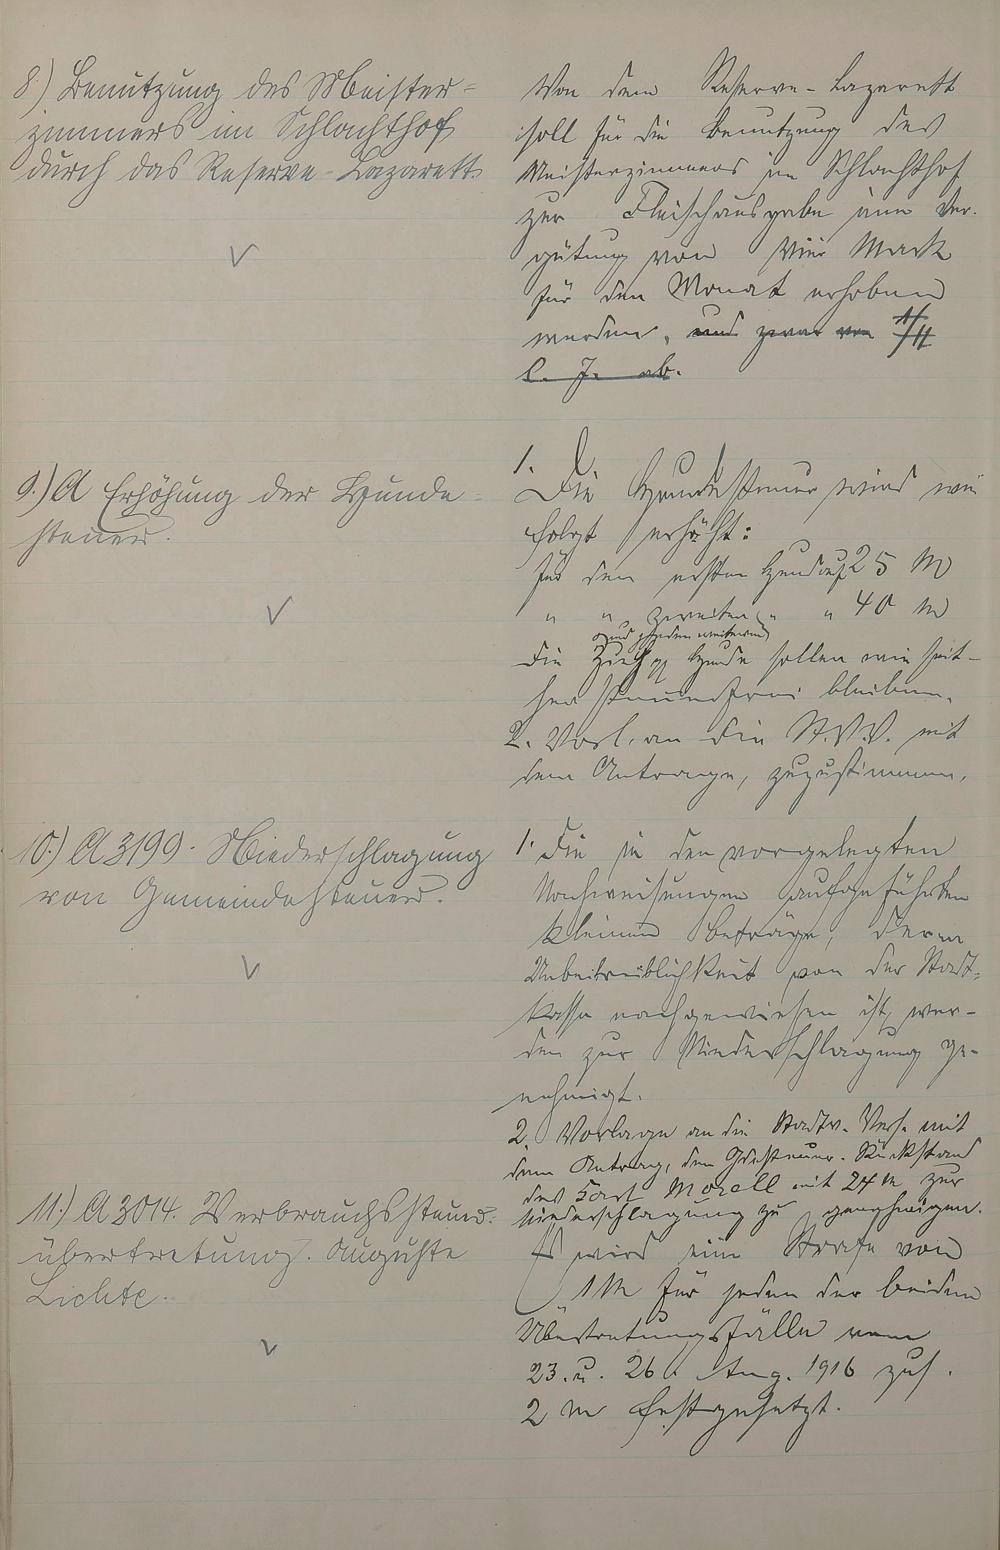 8.) Benutzung des Meister-
zimmers im Schlachthof
durch das Reserve-Lazarett.
Von dem Reserve-Lazarett
soll für die Benutzung des
Meisterzimmers im Schlachthof
zur Fleischausgabe eine Ver-
gütung von vier Mark
für den Monat erhoben
werden, und zwar von 1/11
l. J. ab.
9.) A Erhöhung der Hunde-
steuer.
1.
Die Hundesteuer wird wie
folgt erhöht:
für den ersten Hund auf 25 M
" " zweiten " " 40 M
und jeden weiteren
Die Zieh Hunde sollen wie seit-
her steuerfrei bleiben.
2. Vorl. an die St.V.V. mit
dem Antrage, zuzustimmen.
10.) A 3199. Niederschlagung
von Gemeindesteuern.
1. Die in den vorgelegten
Nachweisungen aufgeführten
kleinen Beträge, deren
Unbeitreiblichkeit von der Stadt-
kasse nachgewiesen ist, wer-
den zur Niederschlagung ge-
nehmigt.
2. Vorlage an die Stadtv. Vers. mit
dem Antrag, den Gdesteuer-Rückstand
des Morell mit 24 M zur
Niederschlagung zu genehmigen.
11.) A 3014. Verbrauchssteuer-
übertretung. Auguste
Lichte.
Es wird eine Strafe von
1 M für jeden der beiden
Übertretungsfälle vom
23. u. 26. Aug. 1916 zus.
2 M festgesetzt.